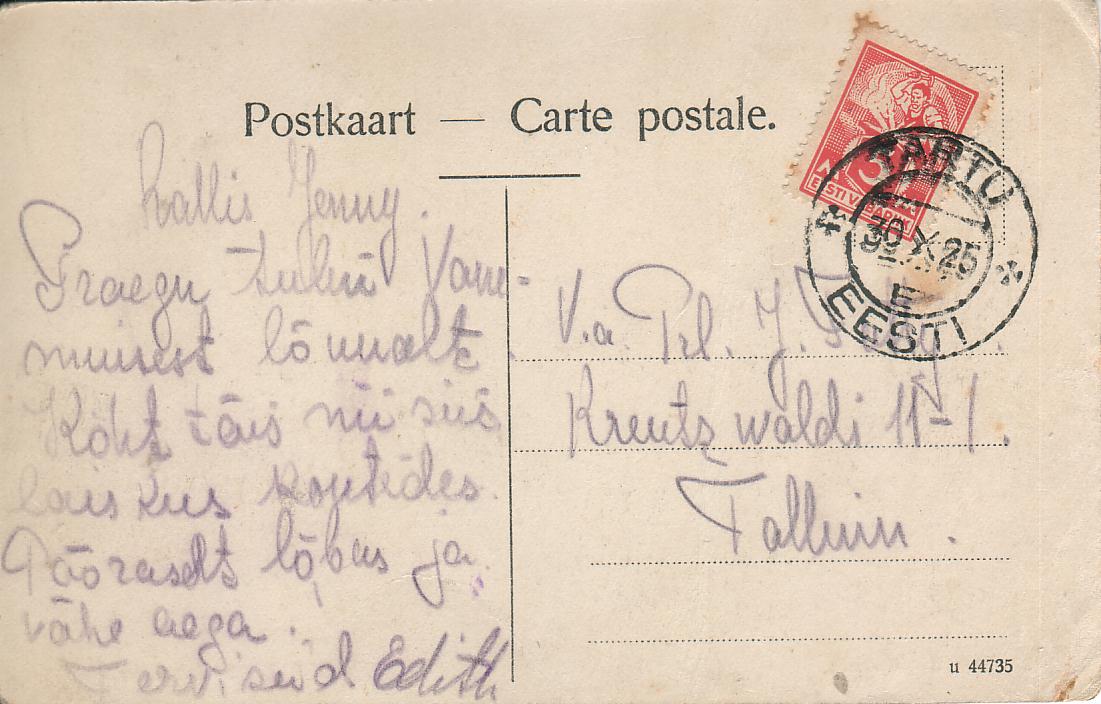 Postkaart — Carte postale.
Kallis Jenny.
Praegu tulin Vane-
muisest lõunalt.
Kõht täis nii siis
laiskus kontides.
Pööraselt lõbus ja
vähe aega.
Terviseid Edith
V.a. Prl. J.
Kreutzwaldi 11-1.
Tallinn.
3
EESTI VABARIIK
TARTU
30 X 25
E
EESTI
u 44735